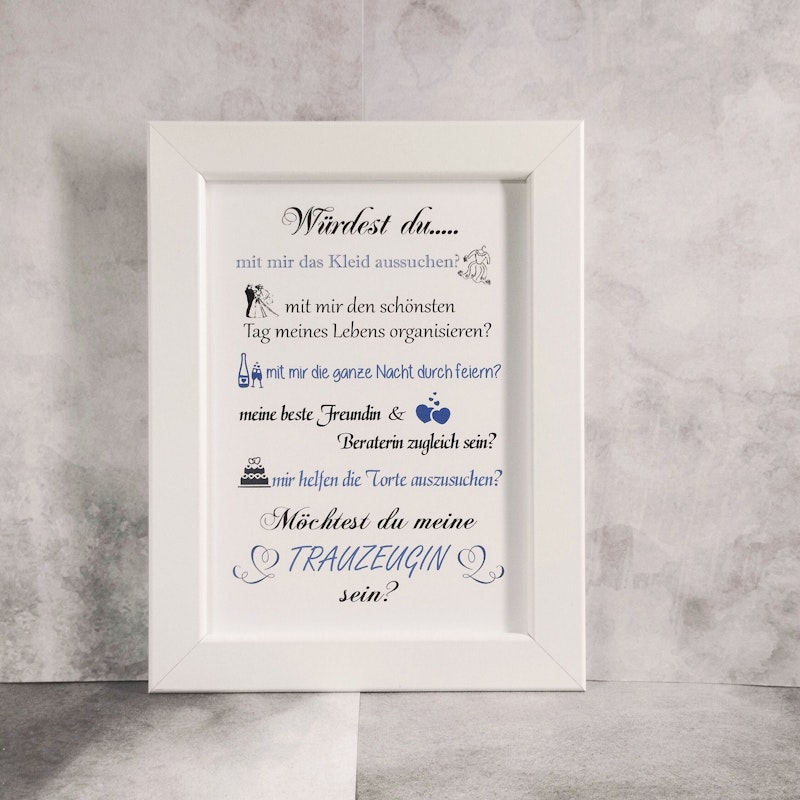 Würdest du.....
mit mir das Kleid aussuchen?
mit mir den schönsten
Tag meines Lebens organisieren?
mit mir die ganze Nacht durch feiern?
meine beste Freundin &
Beraterin zugleich sein?
mir helfen die Torte auszusuchen?
Möchtest du meine
TRAUZEUGIN
sein?